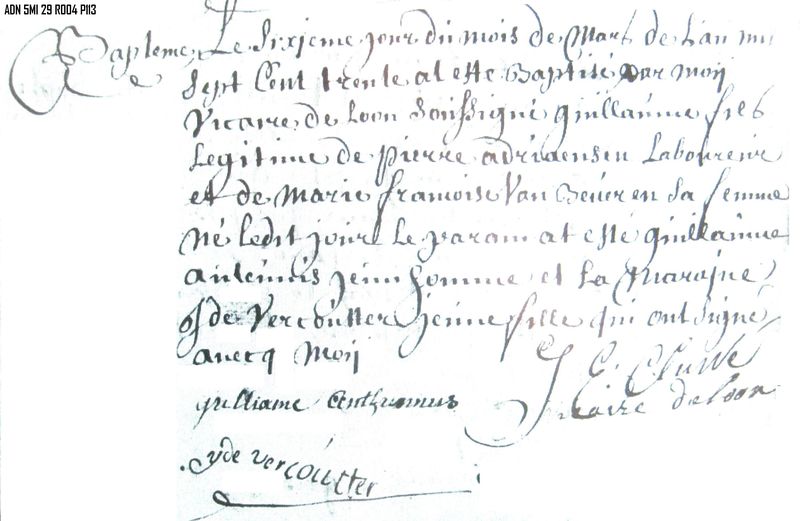 ADN 5MI 29 R004 P113
Bapteme Le sixieme jour du mois de Mars de L'an mil
sept Cent trente at este Baptisé par moij
Vicaire de Loon soussigné guillaume fils
Legitime de pierre adriaensen Laboureur
et de Marie francoise Van Beveren sa femme
né ledit jour Le parain at esté guillaume
anteunis jeun homme et La Maraine
yde Vercoutter jeune fille qui ont signé
avecq Moij
guilliame
yde vercoutter
vicaire de loon